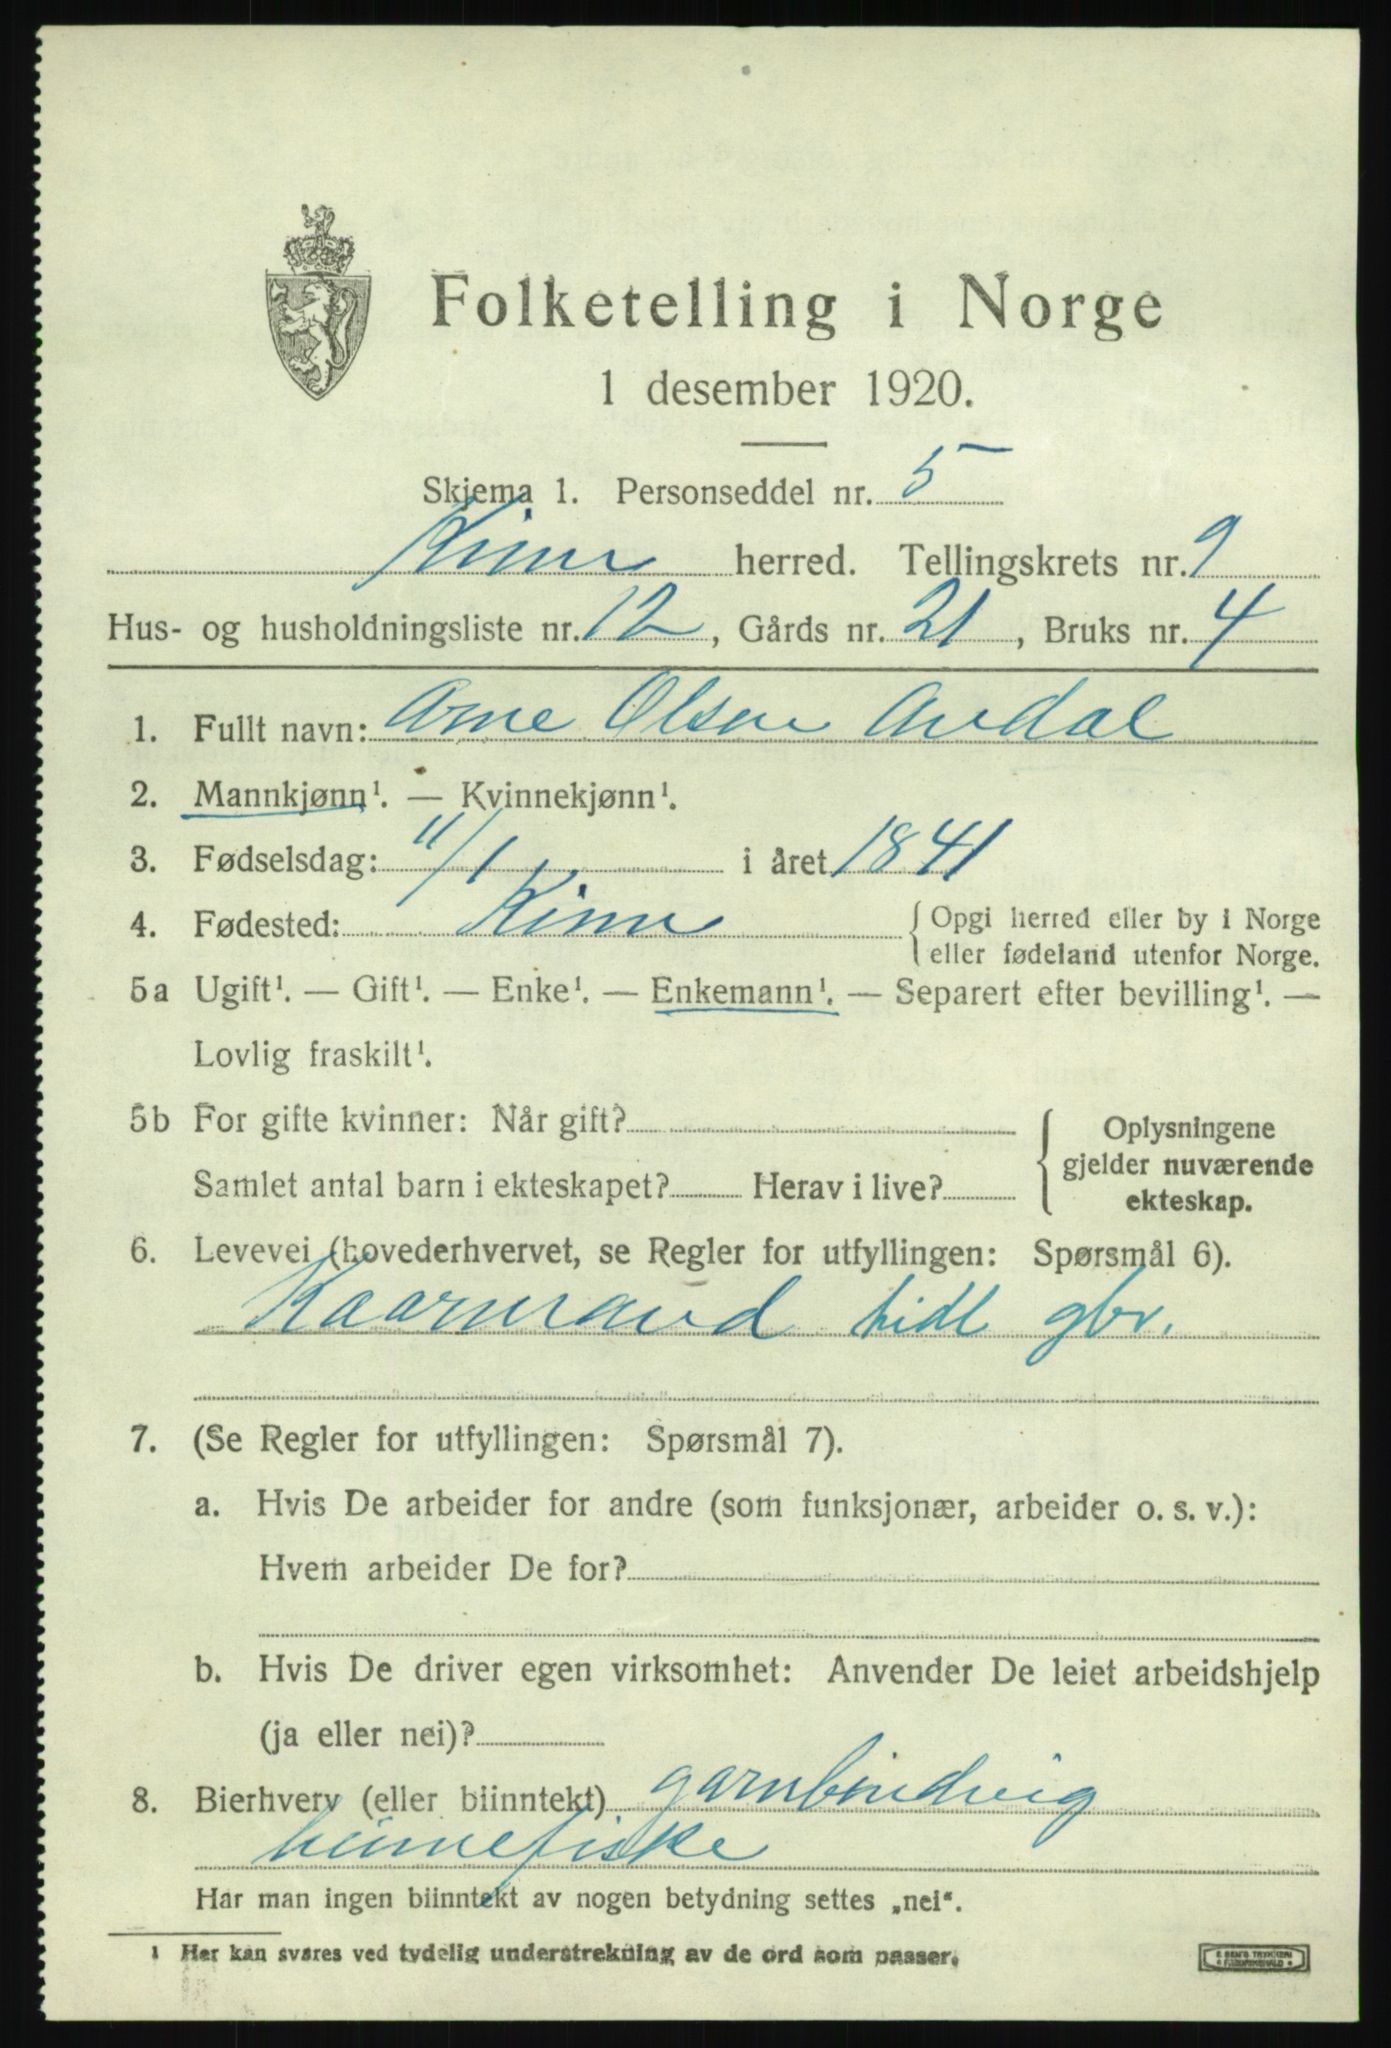 Folketelling i Norge
1 desember 1920.
Skjema 1. Personseddel nr. 5
Kinn herred. Tellingskrets nr. 9
Hus- og husholdningsliste nr. 12, Gårds nr. 21, Bruks nr. 4
1. Fullt navn: Arne Olsen Avdal
2. Mannkjønn¹. — Kvinnekjønn¹.
3. Fødselsdag: 11/1 i året 1841
4. Fødested: Kinn { Opgi herred eller by i Norge
eller fødeland utenfor Norge.
5a Ugift¹. — Gift¹. — Enke¹. — Enkemann¹. — Separert efter bevilling¹. —
Lovlig fraskilt¹.
5b For gifte kvinner: Når gift?
Samlet antal barn i ekteskapet? Herav i live?
Oplysningene
gjelder nuværende
ekteskap.
6. Levevei (hovederhvervet, se Regler for utfyllingen: Spørsmål 6).
Kaarmand tidl gbr.
7. (Se Regler for utfyllingen: Spørsmål 7).
a. Hvis De arbeider for andre (som funksjonær, arbeider o. s. v.):
Hvem arbeider De for?
b. Hvis De driver egen virksomhet: Anvender De leiet arbeidshjelp
(ja eller nei)?
8. Bierhverv (eller biinntekt) garnbindvig
hiimefiske
Har man ingen biinntekt av nogen betydning settes „nei“.
1 Her kan svares ved tydelig understrekning av de ord som passer.